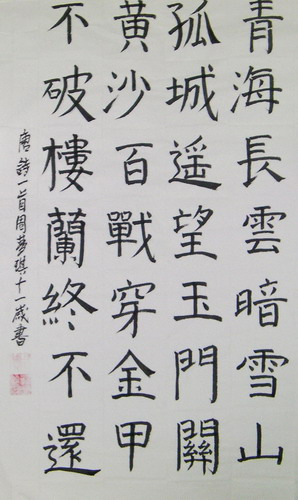 青海長雲暗雪山
孤城遥望玉門關
黃沙百戰穿金甲
不破樓蘭終不還
唐詩一首周夢琪十一歲書